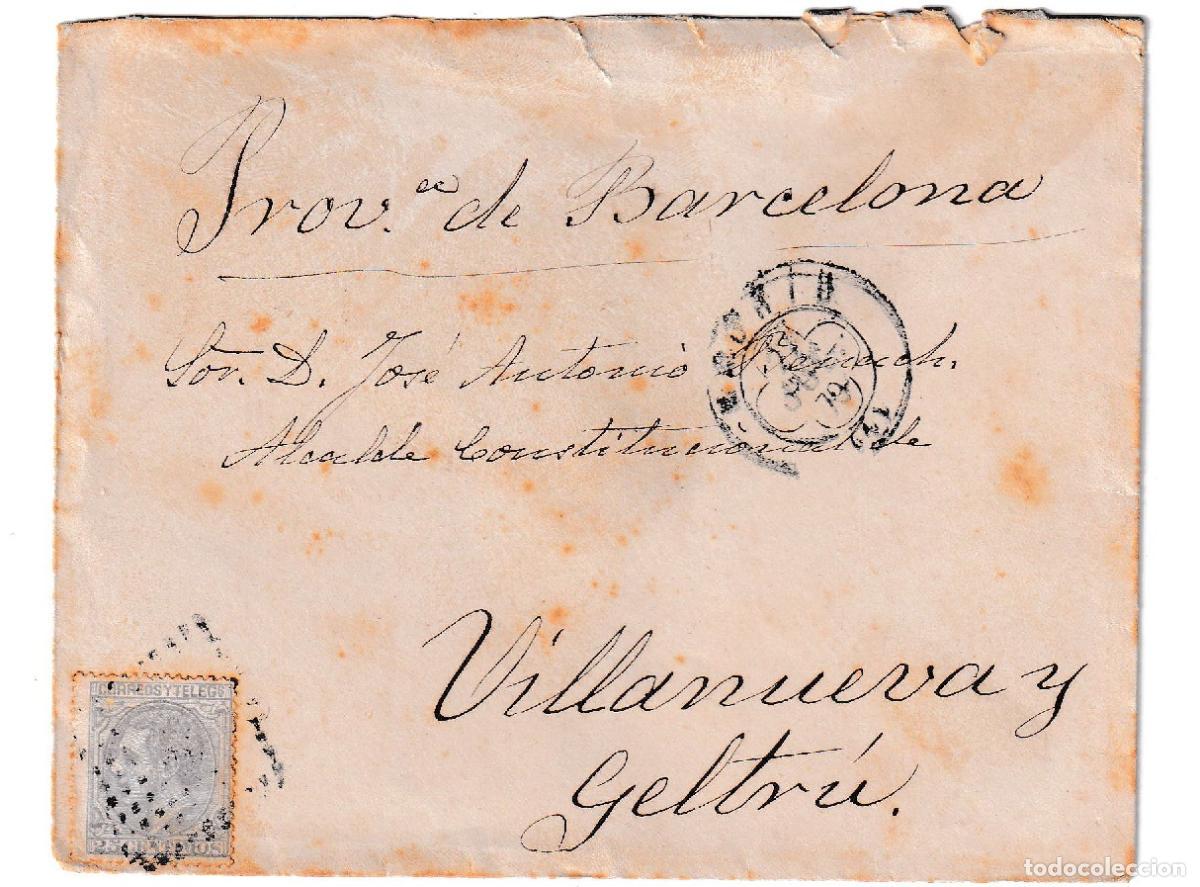 Prov.ª de Barcelona
MADRID
79
Sor. D. José Antonio
Alcalde Constitucional de
Villanueva y
Geltrú.
CORREOS Y TELEGS
25 CENTIMOS
todocoleccion